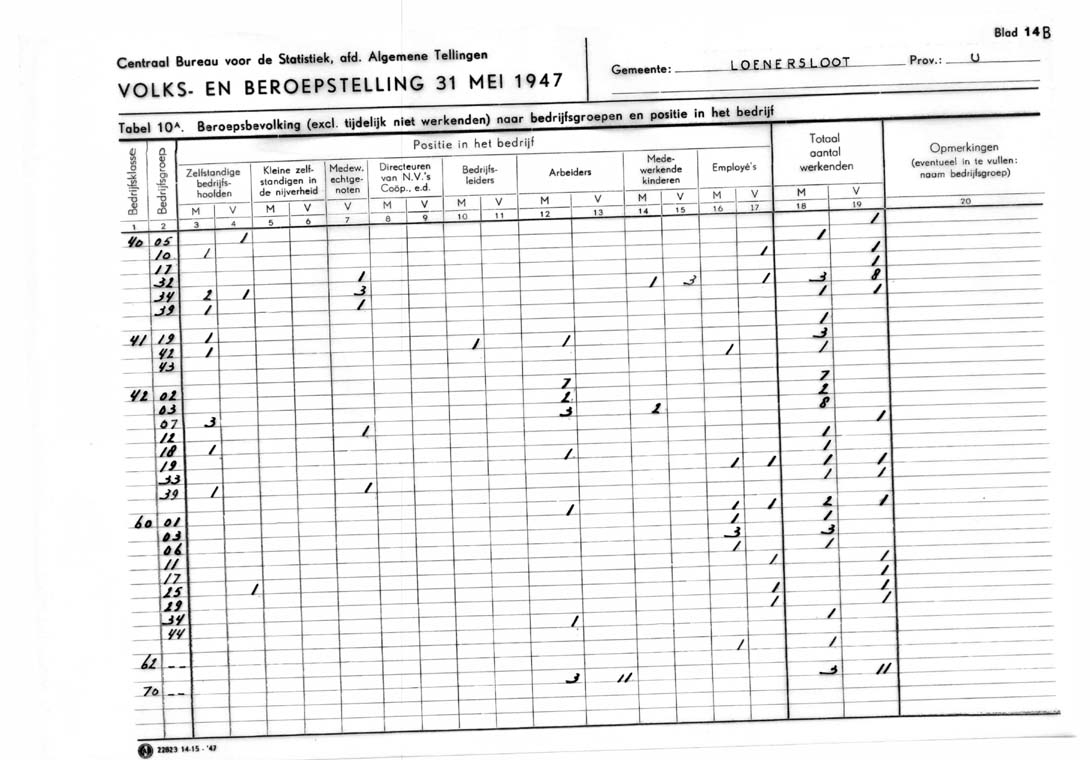 Blad 14B
Centraal Bureau voor de Statistiek, afd. Algemene Tellingen
VOLKS- EN BEROEPSTELLING 31 MEI 1947
Gemeente: LOENERSLOOT Prov.: U
Tabel 10A. Beroepsbevolking (excl. tijdelijk niet werkenden) naar bedrijfsgroepen en positie in het bedrijf
Bedrijfsklasse
Bedrijfsgroep
Positie in het bedrijf
Zelfstandige bedrijfs-hoofden
Kleine zelf-standigen in de nijverheid
Medew. echtge-noten
Directeuren van N.V.'s Coöp., e.d.
Bedrijfs-leiders
Arbeiders
Mede-werkende kinderen
Employé's
Totaal aantal werkenden
Opmerkingen (eventueel in te vullen: naam bedrijfsgroep)
M V M V V M V M V M V M V M V M V
1 2 3 4 5 6 7 8 9 10 11 12 13 14 15 16 17 18 19 20
40 05 1 1
10 1 1
17 1 1
32 1 1
34 2 1 3 1 3 1 3 8
39 1 1 1 1
41 19 1 1
42 1 1 1 3
43 1 1
42 02 7 7
03 2 2
07 3 3 2 8
12 1 1
18 1 1
19 1 1
33 1 1 1 1
39 1 1 1 1
60 01 1 1 1 2 1
03 1 1
06 3 3
11 1 1
17 1 1
25 1 1
29 1 1
34 1 1
44 1 1
62 -- 1 1
70 -- 3 11 3 11
22823 14-15 - '47